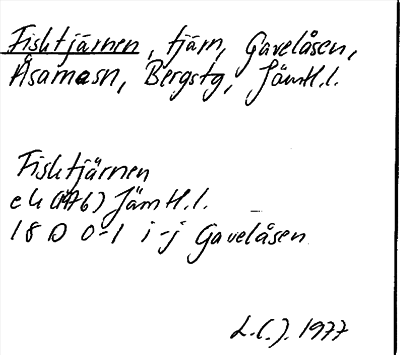 Fisktjärnen, tjärn, Gavelåsen,
Åsarnasn, Bergstg, Jämtl.l.
Fisktjärnen
ek (1976) Jämtl.l.
18 D 0-1 i-j Gavelåsen
L.C.J. 1977